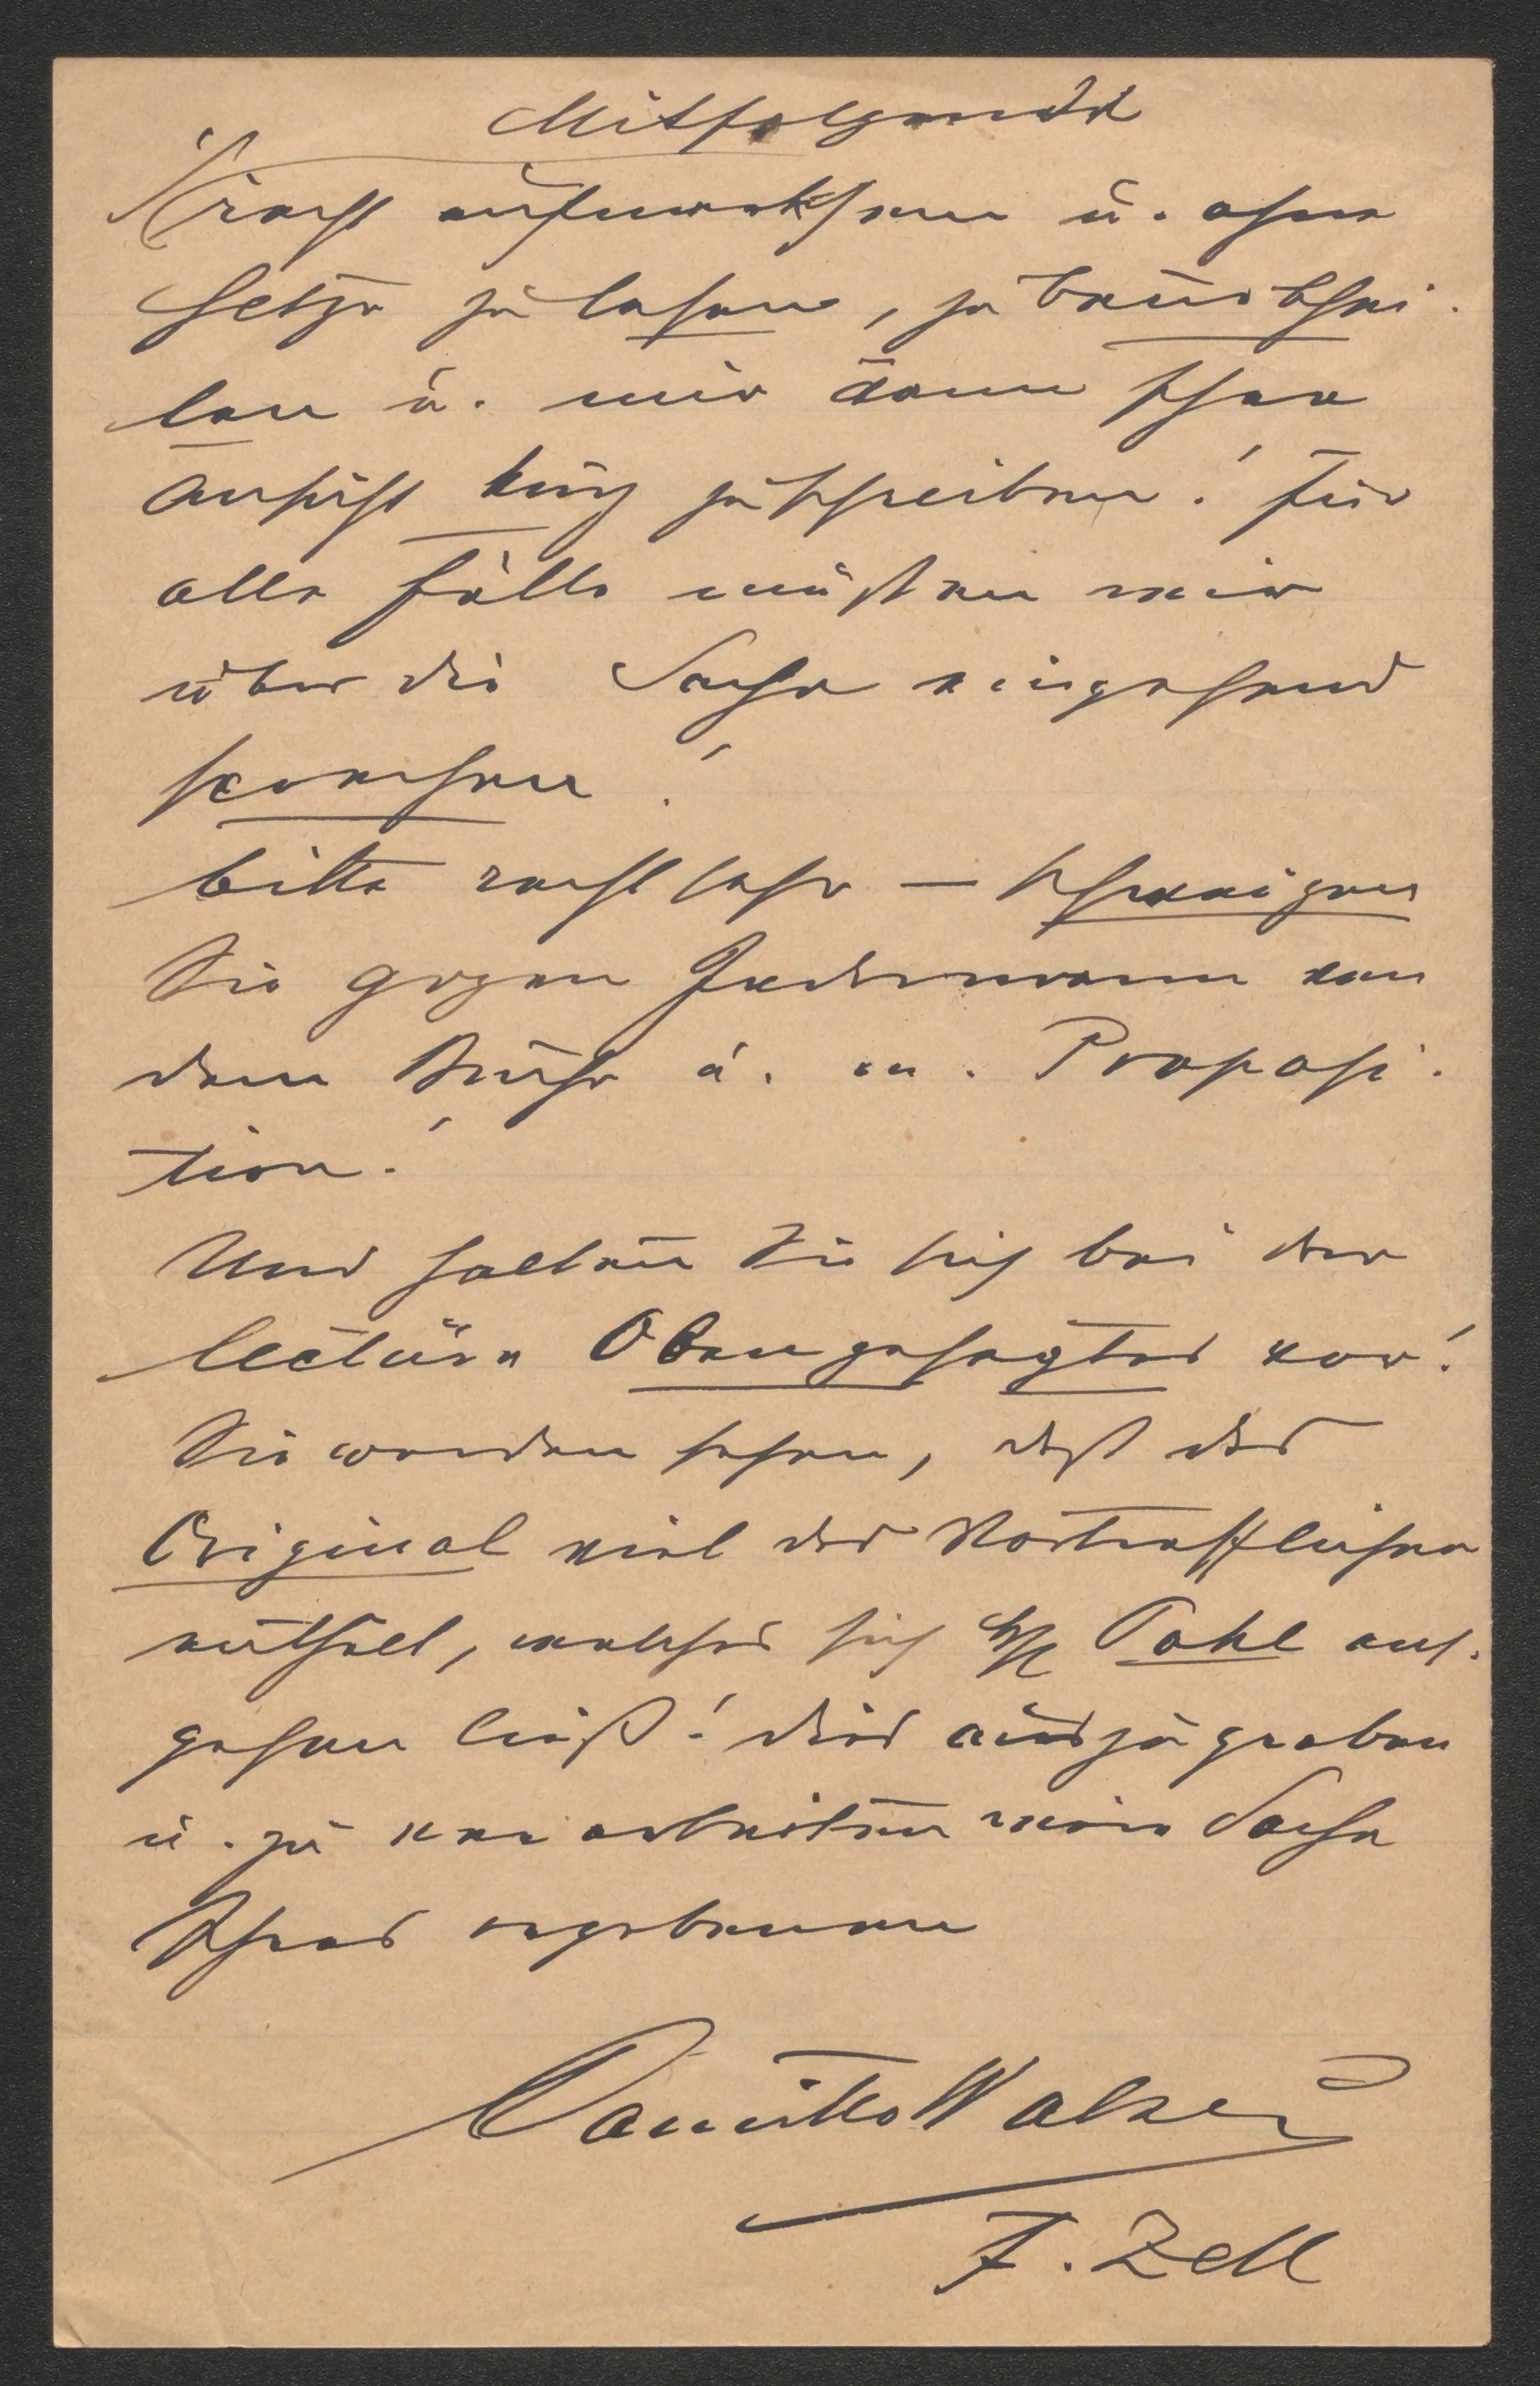 Mitfolgende
recht aufmerksam u. ohne
Hetze zu lesen, zu beurthei-
len u. mir dann Ihre
Ansicht kurz zu schreiben! Für
alle Fälle müßten wir
über die Sache eingehend
sprechen!
bitte recht sehr — schweigen
Sie gegen Jedermann von
dem Buche u. m. Proposi-
tion!
Und halten Sie sich bei der
Lectüre Obengesagtes vor!
Sie werden sehen, daß das
Original viel des Vortrefflichen
enthält, welches sich H. Pohl ent-
gehen ließ! Dies auszugraben
u. zu verarbeiten wäre Sache
Ihres ergebenen
Camillo Walzel
F. Zell